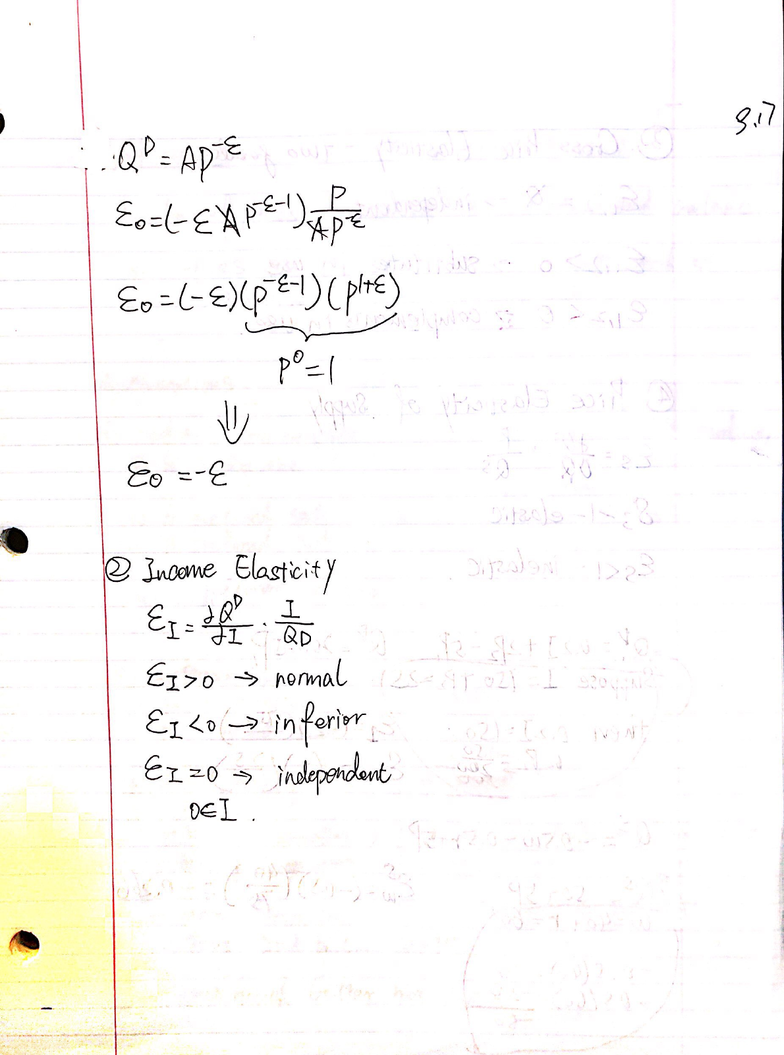 3.17
Q^D = AP^-ε
ε_0 = (-ε A P^-ε-1) P/AP^-ε
ε_0 = (-ε)(P^-ε-1)(P^1+ε)
P^0 = 1
⇓
ε_0 = -ε
② Income Elasticity
ε_I = ∂Q^D/∂I · I/QD
ε_I > 0 → normal
ε_I < 0 → inferior
ε_I = 0 → independent
0∈I.